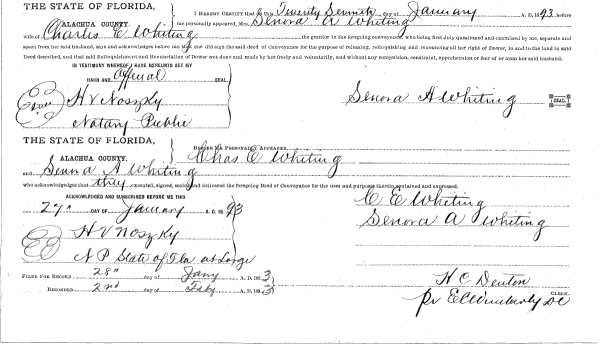 THE STATE OF FLORIDA,
ALACHUA COUNTY.
I HEREBY CERTIFY that on this Twenty Seventh day of January A. D. 1893 before
me personally appeared, Mrs. Senora A Whiting
wife of Charles E Whiting the grantor in the foregoing conveyance, who being by me duly questioned and examined by me, separate and
apart from her said husband, says and acknowledges before me that she did sign the said deed of Conveyance for the purpose of releasing, relinquishing and renouncing all her right of Dower, in and to the land in said
Deed described, and that said Relinquishment and Renunciation of Dower was done and made by her freely and voluntarily, and without any compulsion, constraint, apprehension or fear of or from her said husband.
IN TESTIMONY WHEREOF I HAVE HEREUNTO SET MY
HAND AND Official SEAL.
H V Noszky
Notary Public
Senora A Whiting SEAL.
THE STATE OF FLORIDA,
ALACHUA COUNTY.
BEFORE ME PERSONALLY APPEARED
Chas E Whiting
and Senora A Whiting
who acknowledges that they executed, signed, sealed and delivered the foregoing Deed of Conveyance for the uses and purposes therein contained and expressed.
ACKNOWLEDGED AND SUBSCRIBED BEFORE ME THIS
27th DAY OF January A. D. 1893
H V Noszky
N P State of Fla at Large
C E Whiting
Senora A Whiting
FILED FOR RECORD 28th day of Jany A. D. 1893
RECORDED 2nd day of Feby A. D. 1893
H C Denton
CLERK.
pr E C Wimberly DC